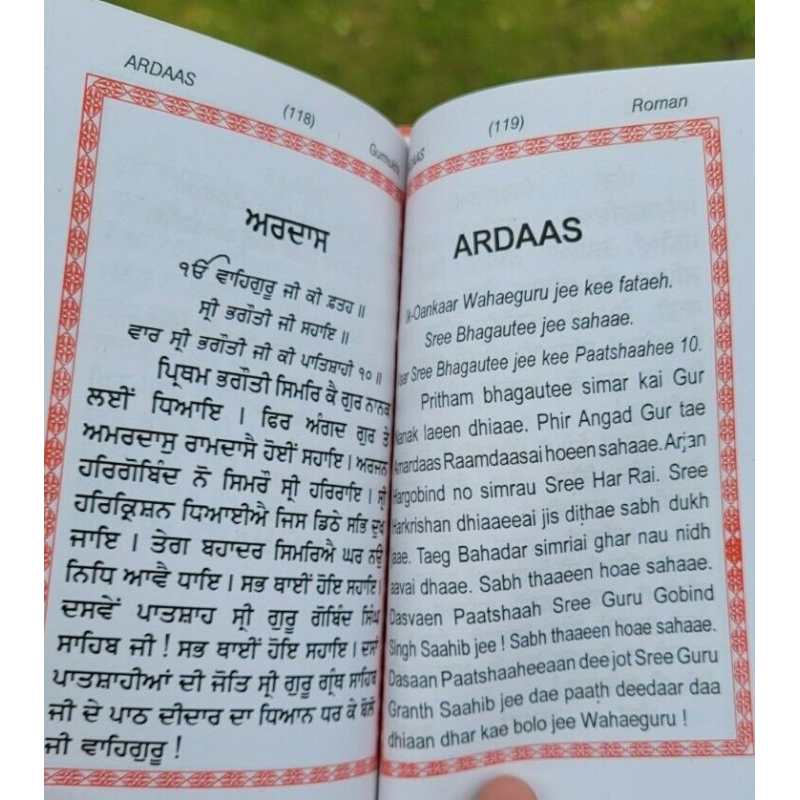 ARDAAS
(118)
ਅਰਦਾਸ
ੴ ਵਾਹਿਗੁਰੂ ਜੀ ਕੀ ਫ਼ਤਹ ॥
ਸ੍ਰੀ ਭਗੌਤੀ ਜੀ ਸਹਾਇ ॥
ਵਾਰ ਸ੍ਰੀ ਭਗੌਤੀ ਜੀ ਕੀ ਪਾਤਿਸ਼ਾਹੀ ੧੦ ॥
ਪ੍ਰਿਥਮ ਭਗੌਤੀ ਸਿਮਰਿ ਕੈ ਗੁਰ ਨਾਨਕ
ਲਈਂ ਧਿਆਇ । ਫਿਰ ਅੰਗਦ ਗੁਰ ਤੇ
ਅਮਰਦਾਸੁ ਰਾਮਦਾਸੈ ਹੋਈਂ ਸਹਾਇ । ਅਰਜਨ
ਹਰਿਗੋਬਿੰਦ ਨੋ ਸਿਮਰੌ ਸ੍ਰੀ ਹਰਿਰਾਇ । ਸ੍ਰੀ
ਹਰਿਕ੍ਰਿਸ਼ਨ ਧਿਆਈਐ ਜਿਸ ਡਿਠੇ ਸਭਿ ਦੁਖ
ਜਾਇ । ਤੇਗ ਬਹਾਦਰ ਸਿਮਰਿਐ ਘਰ ਨਉ
ਨਿਧਿ ਆਵੈ ਧਾਇ । ਸਭ ਥਾਈਂ ਹੋਇ ਸਹਾਇ।
ਦਸਵੇਂ ਪਾਤਸ਼ਾਹ ਸ੍ਰੀ ਗੁਰੂ ਗੋਬਿੰਦ ਸਿੰਘ
ਸਾਹਿਬ ਜੀ ! ਸਭ ਥਾਈਂ ਹੋਇ ਸਹਾਇ । ਦਸਾਂ
ਪਾਤਸ਼ਾਹੀਆਂ ਦੀ ਜੋਤਿ ਸ੍ਰੀ ਗੁਰੂ ਗ੍ਰੰਥ ਸਾਹਿਬ
ਜੀ ਦੇ ਪਾਠ ਦੀਦਾਰ ਦਾ ਧਿਆਨ ਧਰ ਕੇ ਬੋਲੋ
ਜੀ ਵਾਹਿਗੁਰੂ !
(119)
Roman
ARDAAS
Wahaeguru jee kee fataeh.
Sree Bhagautee jee sahaae.
Sree Bhagautee jee kee Paatshaahee 10.
Pritham bhagautee simar kai Gur
Nanak laeen dhiaae. Phir Angad Gur tae
Amardaas Raamdaasai hoeen sahaae. Arjan
Hargobind no simrau Sree Har Rai. Sree
Harkrishan dhiaaeeai jis dithae sabh dukh
Taeg Bahadar simriai ghar nau nidh
aavai dhaae. Sabh thaaeen hoae sahaae.
Dasvaen Paatshaah Sree Guru Gobind
Singh Saahib jee ! Sabh thaaeen hoae sahaae.
Dasaan Paatshaaheeaan dee jot Sree Guru
Granth Saahib jee dae paath deedaar daa
dhiaan dhar kae bolo jee Wahaeguru !